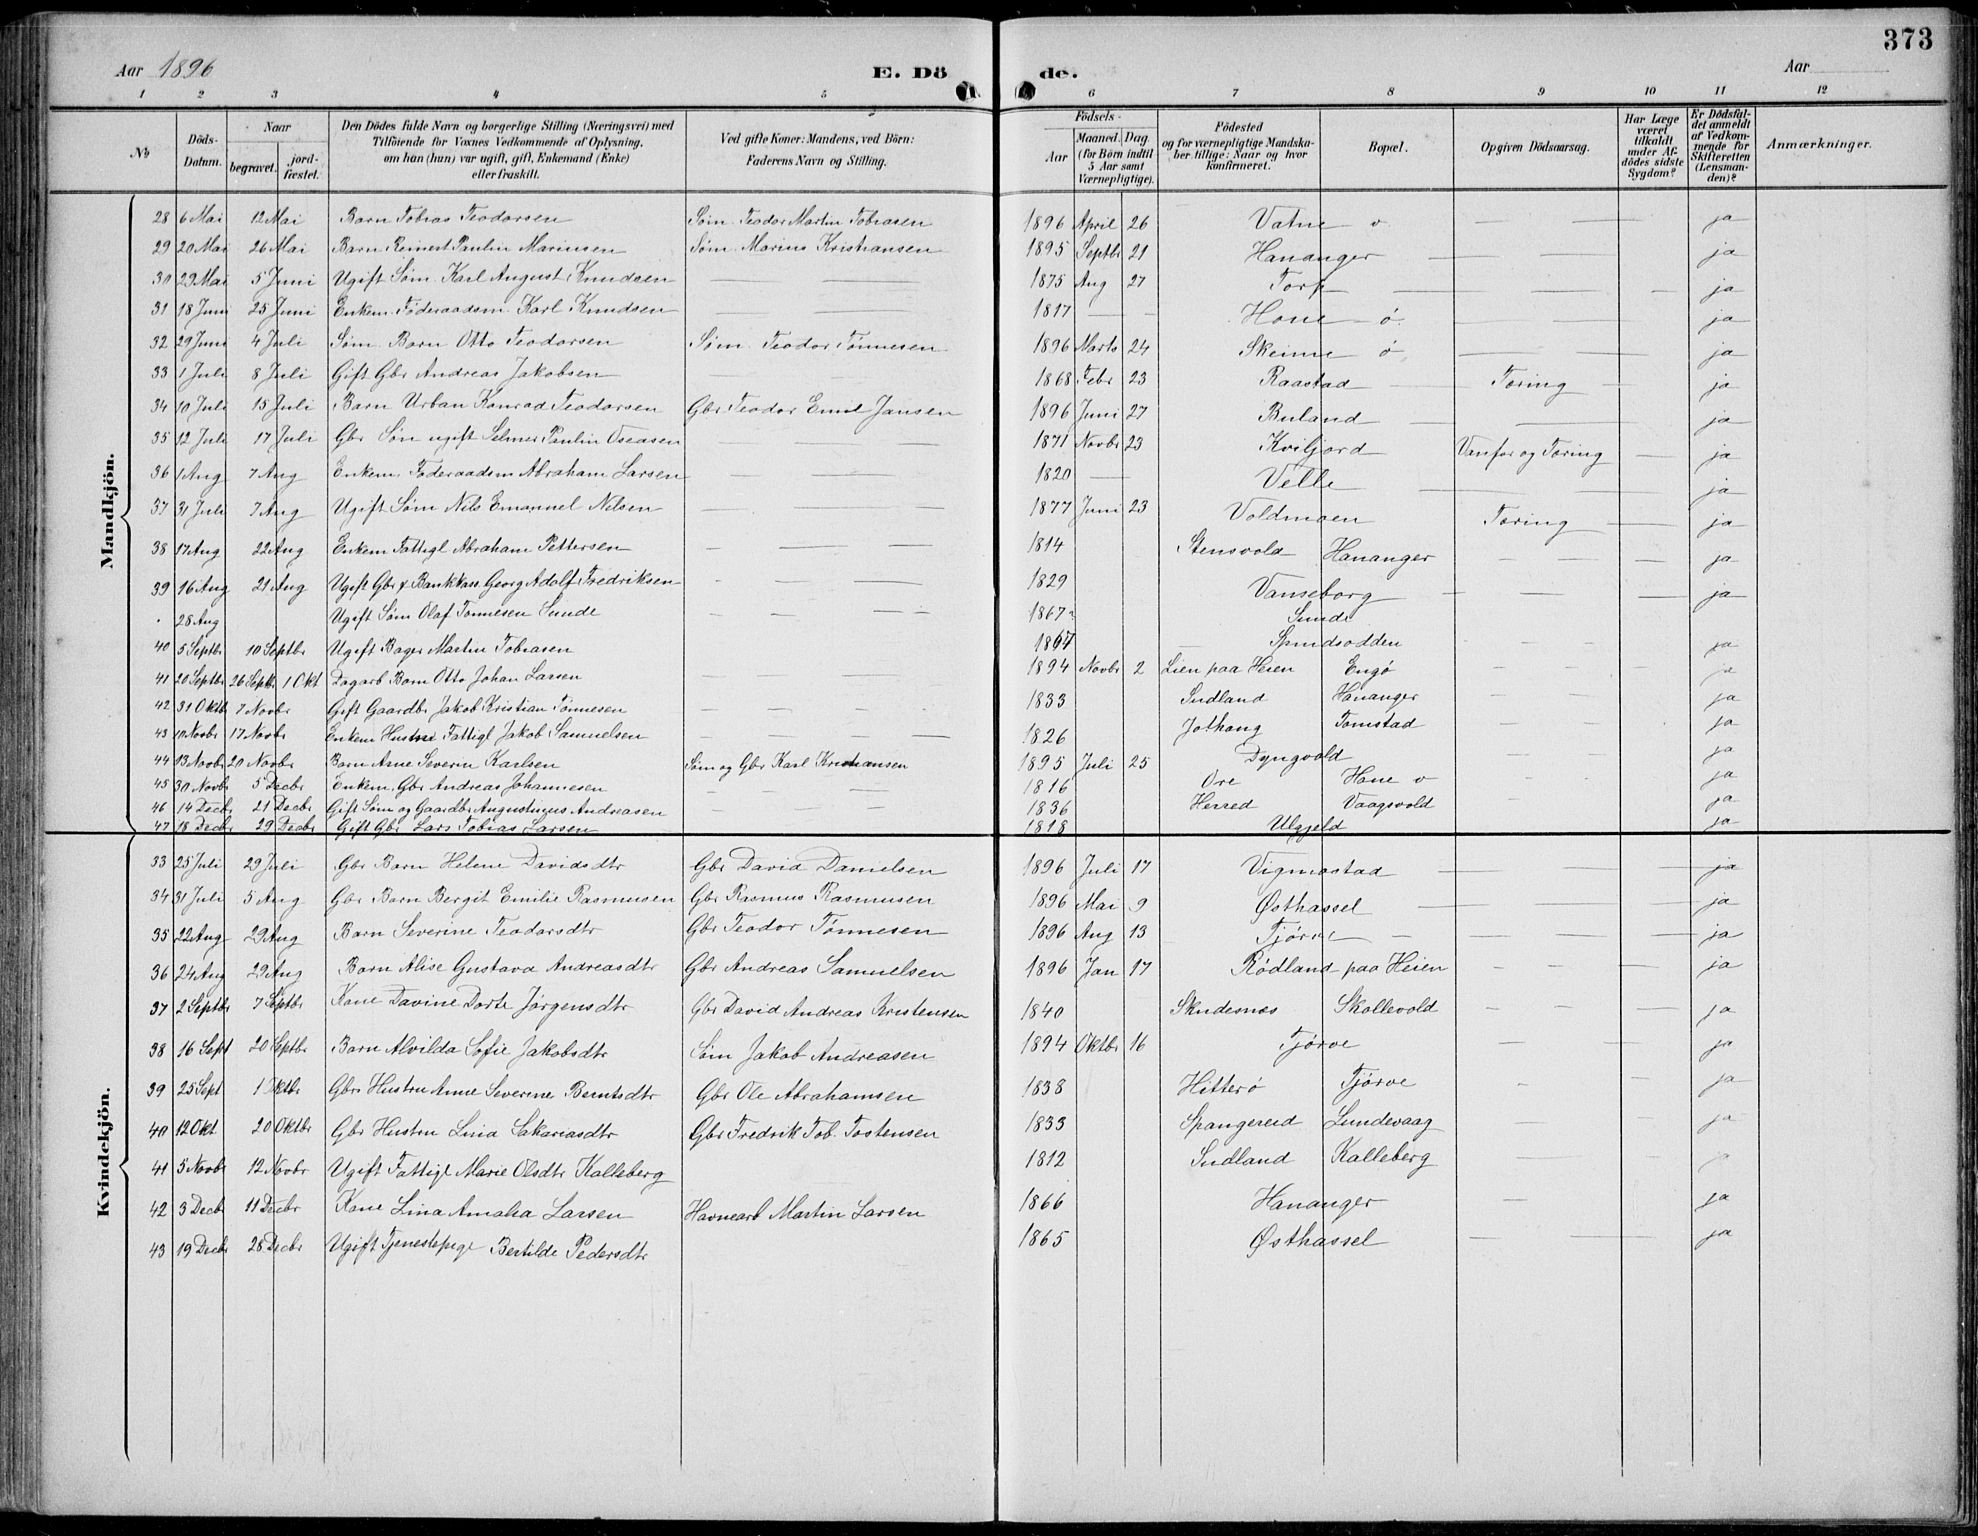 373
Aar 1896 E. Dö de. Aar
1 2 3 4 5 6 7 8 9 10 11 12
No
Döds-Datum.
Naar begravet. jord-fæstet.
Den Dödes fulde Navn og borgerlige Stilling (Næringsvei) med Tilföiende for Voxnes Vedkommende af Oplysning, om han (hun) var ugift, gift, Enkemand (Enke) eller fraskilt.
Ved gifte Koner: Mandens, ved Börn: Faderens Navn og Stilling.
Födsels- Aar Maaned. Dag. (for Börn indtil 5 Aar samt Værnepligtige).
Födested og for værnepligtige Mandskaber tillige: Naar og hvor konfirmeret.
Bopæl.
Opgiven Dödsaarsag.
Har Læge været tilkaldt under Afdödes sidste Sygdom?
Er Dödsfaldet anmeldt af Vedkommende for Skifteretten (Lensmanden)?
Anmærkninger.
Mandkjön.
28 6 Mai 12 Mai Barn Tobias Teodorsen Søm. Teodor Martin Tobiasen 1896 April 26 Vatne v. — — ja
29 20 Mai 26 Mai Barn Reinert Paulin Marinsen Søm. Marius Kristiansen 1895 Septbr 21 Hananger — — — ja
30 29 Mai 5 Juni Ugift Søm. Karl August Knudsen — — 1875 Aug 27 Torp — — — ja
31 18 Juni 25 Juni Enkem. Föderaadsm. Karl Knudsen — — 1817 — — Hone ø. — — ja
32 29 Juni 4 Juli Søm. Barn Otto Teodorsen Søm. Teodor Tönnesen 1896 Marts 24 Skeime ø — — ja
33 1 Juli 8 Juli Gift Gbr Andreas Jakobsen — — 1868 Febr 23 Raastad — Tæring — ja
34 10 Juli 15 Juli Barn Urban Konrad Teodorsen Gbr Teodor Emil Jansen 1896 Juni 27 Buland — — — ja
35 12 Juli 17 Juli Gbr Søn ugift Selmer Paulin Oseasen — — 1871 Novbr 23 Kviljord Vanfør og Tæring — ja
36 1 Aug 7 Aug Enkem. Föderaadsm Abraham Larsen — — 1820 — Velle — — — ja
37 31 Juli 7 Aug Ugift Søm Nils Emanuel Nilsen — — 1877 Juni 23 Voldmoen Tæring — ja
38 17 Aug 22 Aug Enkem Fattigl Abraham Pettersen — — — 1814 Stensvold Hananger — — — ja
39 16 Aug 21 Aug Ugift Gbr & Bankkass. Georg Adolf Fredriksen — — — 1829 Vanseborg — — — — ja
28 Aug Ugift Søm Olaf Tönnesen Sunde — — — 1867 Sunde
40 5 Septbr 10 Septbr Ugift Bager Martin Tobiasen 1867 — Spindsodden ja
41 20 Septbr 26 Septbr 1 Okt Dagarb Barn Otto Johan Larsen — — — 1894 Novbr 2 Lien paa Heien Engø — — — ja
42 31 Oktb 7 Novbr Gift Gaardbr Jakob Kristian Tönnesen — — — 1833 Sudland Hananger — — ja
43 10 Novbr 17 Novbr Enkem Fattigl Jakob Samuelsen — — — 1826 Tomstad — — ja
44 13 Novbr 20 Novbr Barn Arne Severin Karlsen Søm og Gbr Karl Kristiansen 1895 Juli 25 Dyngvold — — ja
45 30 Novbr 5 Decbr Enkem. Gbr Andreas Johannesen — — — 1816 Ore Hane v — — ja
46 14 Decbr 21 Decbr Gift Søm og Gaardbr Augustinus Andreasen — — — 1836 Herred Vaagsvold — — ja
47 18 Decbr 29 Decbr Gift Gbr Lars Tobias Larsen 1818 Ulgjeld ja
Kvindekjön.
33 25 Juli 29 Juli Gbr Barn Helene Davidsdtr Gbr David Danielsen 1896 Juli 17 Vigmostad — — — ja
34 31 Juli 5 Aug Gbr Barn Bergit Emilie Rasmusen Gbr Rasmus Rasmusen 1896 Mai 9 Østhassel — — — ja
35 22 Aug 29 Aug Barn Severine Teodorsdtr Gbr Teodor Tönnesen 1896 Aug 13 Tjørve — — — — ja
36 24 Aug 29 Aug Barn Alise Gustava Andreasdtr Gbr Andreas Samuelsen 1896 Jan 17 Rödland paa Heien — — — ja
37 2 Septbr 7 Septbr Kone Davine Dorte Jørgensdtr Gbr David Andreas Kristensen 1840 Skudesnæs Skollevold — — — ja
38 16 Sept 20 Septbr Barn Alvilda Sofie Jakobsdtr Søm Jakob Andreasen 1894 Oktbr 16 Tjørve — — — ja
39 25 Sept 1 Oktbr Gbr Hustru Anne Severine Berntsdtr Gbr Ole Abrahamsen 1838 Hitterø Tjørve — — — ja
40 12 Okt 20 Oktbr Gbr Hustru Lina Sakariasdtr Gbr Fredrik Tob. Tostensen 1833 Spangereid Lundevaag — — — ja
41 5 Novbr 12 Novbr Ugift Fattigl Marie Olsdtr Kalleberg 1812 Sudland Kalleberg — — — ja
42 3 Decbr 11 Decbr Kone Lina Amalia Larsen Havnearb Martin Larsen 1866 Hananger — — ja
43 19 Decbr 28 Decbr Ugift Tjenestepige Bertilde Pedersdtr 1865 Østhassel — — — ja